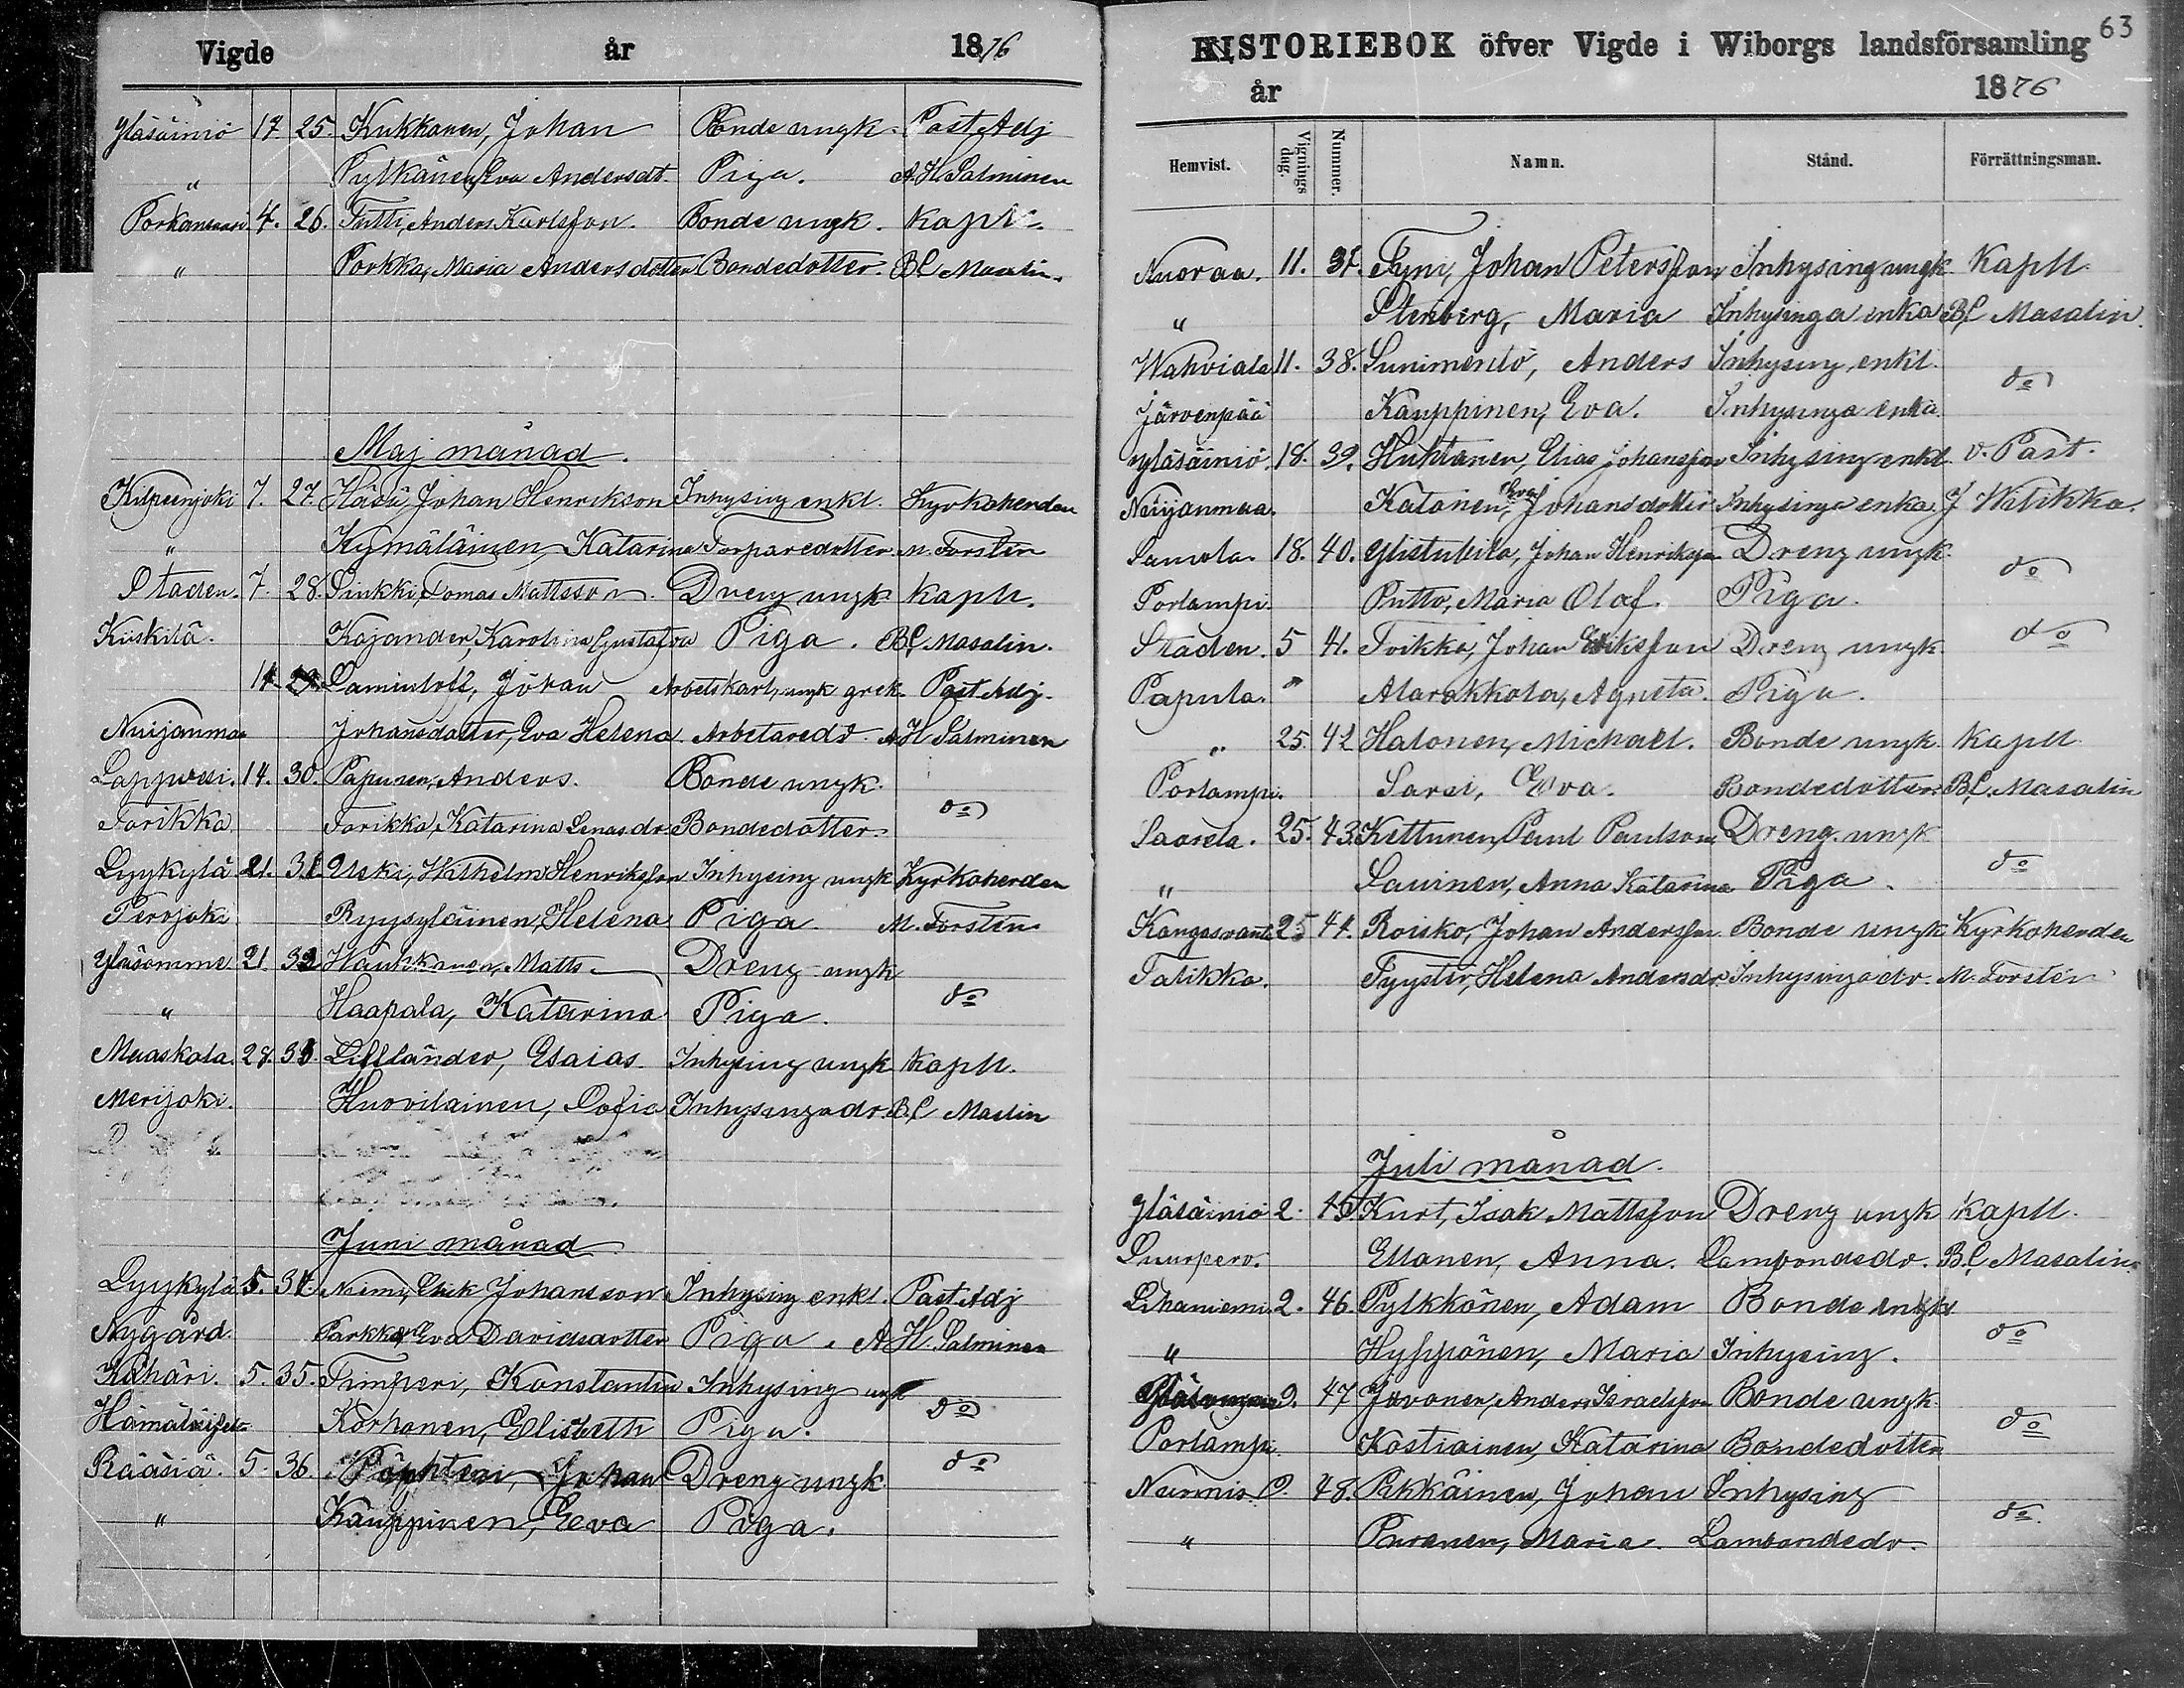 Vigde år 1876
Yläsäiniö 17. 25. Kukkanen, Johan Bonde ungk. Past Adj
" Pylkänen, Eva Andersdt. Piga. A. H. Salminen
Porkansaari 4. 26. Tutti, Anders Karlsson. Bonde ungk. Kapl.
" Porkka, Maria Andersdotter Bondedotter. B C Masalin.
Maj månad.
Kilpeenjoki 7. 27. Häsä, Johan Henrikson Inhysing enkl. Kyrkoherden
" Kymäläinen, Katarina Torparedotter M. Forstén
Staden. 7. 28. Sinkki, Tomas Mattsson. Dreng ungk Kapll.
Kiiskilä. Kajander, Karolina Gustafva Piga. B C Masalin.
14. 29. Johan Arbetskarl, ungk grek. Past Adj.
Nuijanmaa Johansdotter, Eva Helena. Arbetaredr. A H Salminen
Lappvesi. 14. 30. Papunen, Anders. Bonde ungk.
Torikka Torikka, Katarina Bondedotter do
Lyykylä 21. 31. Uski, Wilhelm Henriksson Inhysing ungk Kyrkoherden
Tervjoki Ryysyläinen, Helena Piga M. Forstén
Yläsomme 21. 32 Haukkanen, Matts Dreng ungk
" Haapala, Katarina Piga. do
Maaskola. 28. 33. Lilländer, Esaias. Inhysing ungk Kapll.
Merijoki. Huovilainen, Sofia Inhysingadr. B. C Maslin
Juni månad
Lyykylä 5. 34. Niemi, Erik Johansson Inhysing enkl. Past Adj
Nygård. Parkka, Eva Davidsdotter Piga. A H. Salminen
Kähäri. 5. 35. Timperi, Konstantin Inhysing ungk
Korhonen, Elisbeth Piga. do
Rääsiä. 5. 36. Johan Dreng ungk do
" Kauppinen, Eva Piga.
63
HISTORIEBOK öfver Vigde i Wiborgs landsförsamling
år 1876
Hemvist. Vignings dag. Nummer. Namn. Stånd. Förrättningsman.
Nuoraa. 11. 37. Tyni, Johan Petersson Inhysing ungk. Kapll.
" Stenberg, Maria Inhysinga enka B C Masalin.
Wahviala 11. 38. Sunimento, Anders Inhysing enkl.
Järvenpää Kauppinen, Eva. Inhysinga enka. do
Yläsäiniö. 18. 39. Huhtanen, Elias Johansson Inhysing enkl. v. Past.
Nuijanmaa. Katonen, Eva Johansdotter Inhysinga enka. J Wilikka.
Samola. 18. 40. Ylistuhila, Johan Henriksson Dreng ungk.
Portampi. Putto, Maria Olof. Piga. do
Staden. 5 41. Toikka, Johan Eriksson Dreng ungk. do
Papula. " Alarakkola, Agneta. Piga.
" 25. 42 Halonen, Michael. Bonde ungk. Kapll.
Portampi. Sarei, Eva. Bondedotter B. C. Masalin
Saarela. 25. 43. Kettunen, Paul Paulson, Dreng. ungk
" Lauinen, Anna Katarina Piga. do
25 44. Roisko, Johan Andersson. Bonde ungk Kyrkoherden
Talikka. Tyyster, Helena Andersdr. Inhysingadr. M. Forstén
Juli månad.
Yläsäiniö 2. 45. Kurt, Isak Mattsson Dreng ungk Kapll.
Suurpero. Ellonen, Anna. Lambondedr. B. C. Masalin.
Lihaniemi. 2. 46. Pylkkönen, Adam Bonde
" Hyppönen, Maria Inhysing. do
9. 47 Javanen, Anders Israelsson Bonde ungk.
Portampi. Kostiainen, Katarina Bondedotter do
Nurmis 9. 48. Pikkäinen, Johan Inhysing
" Puranen, Maria. Lambondedr. do.